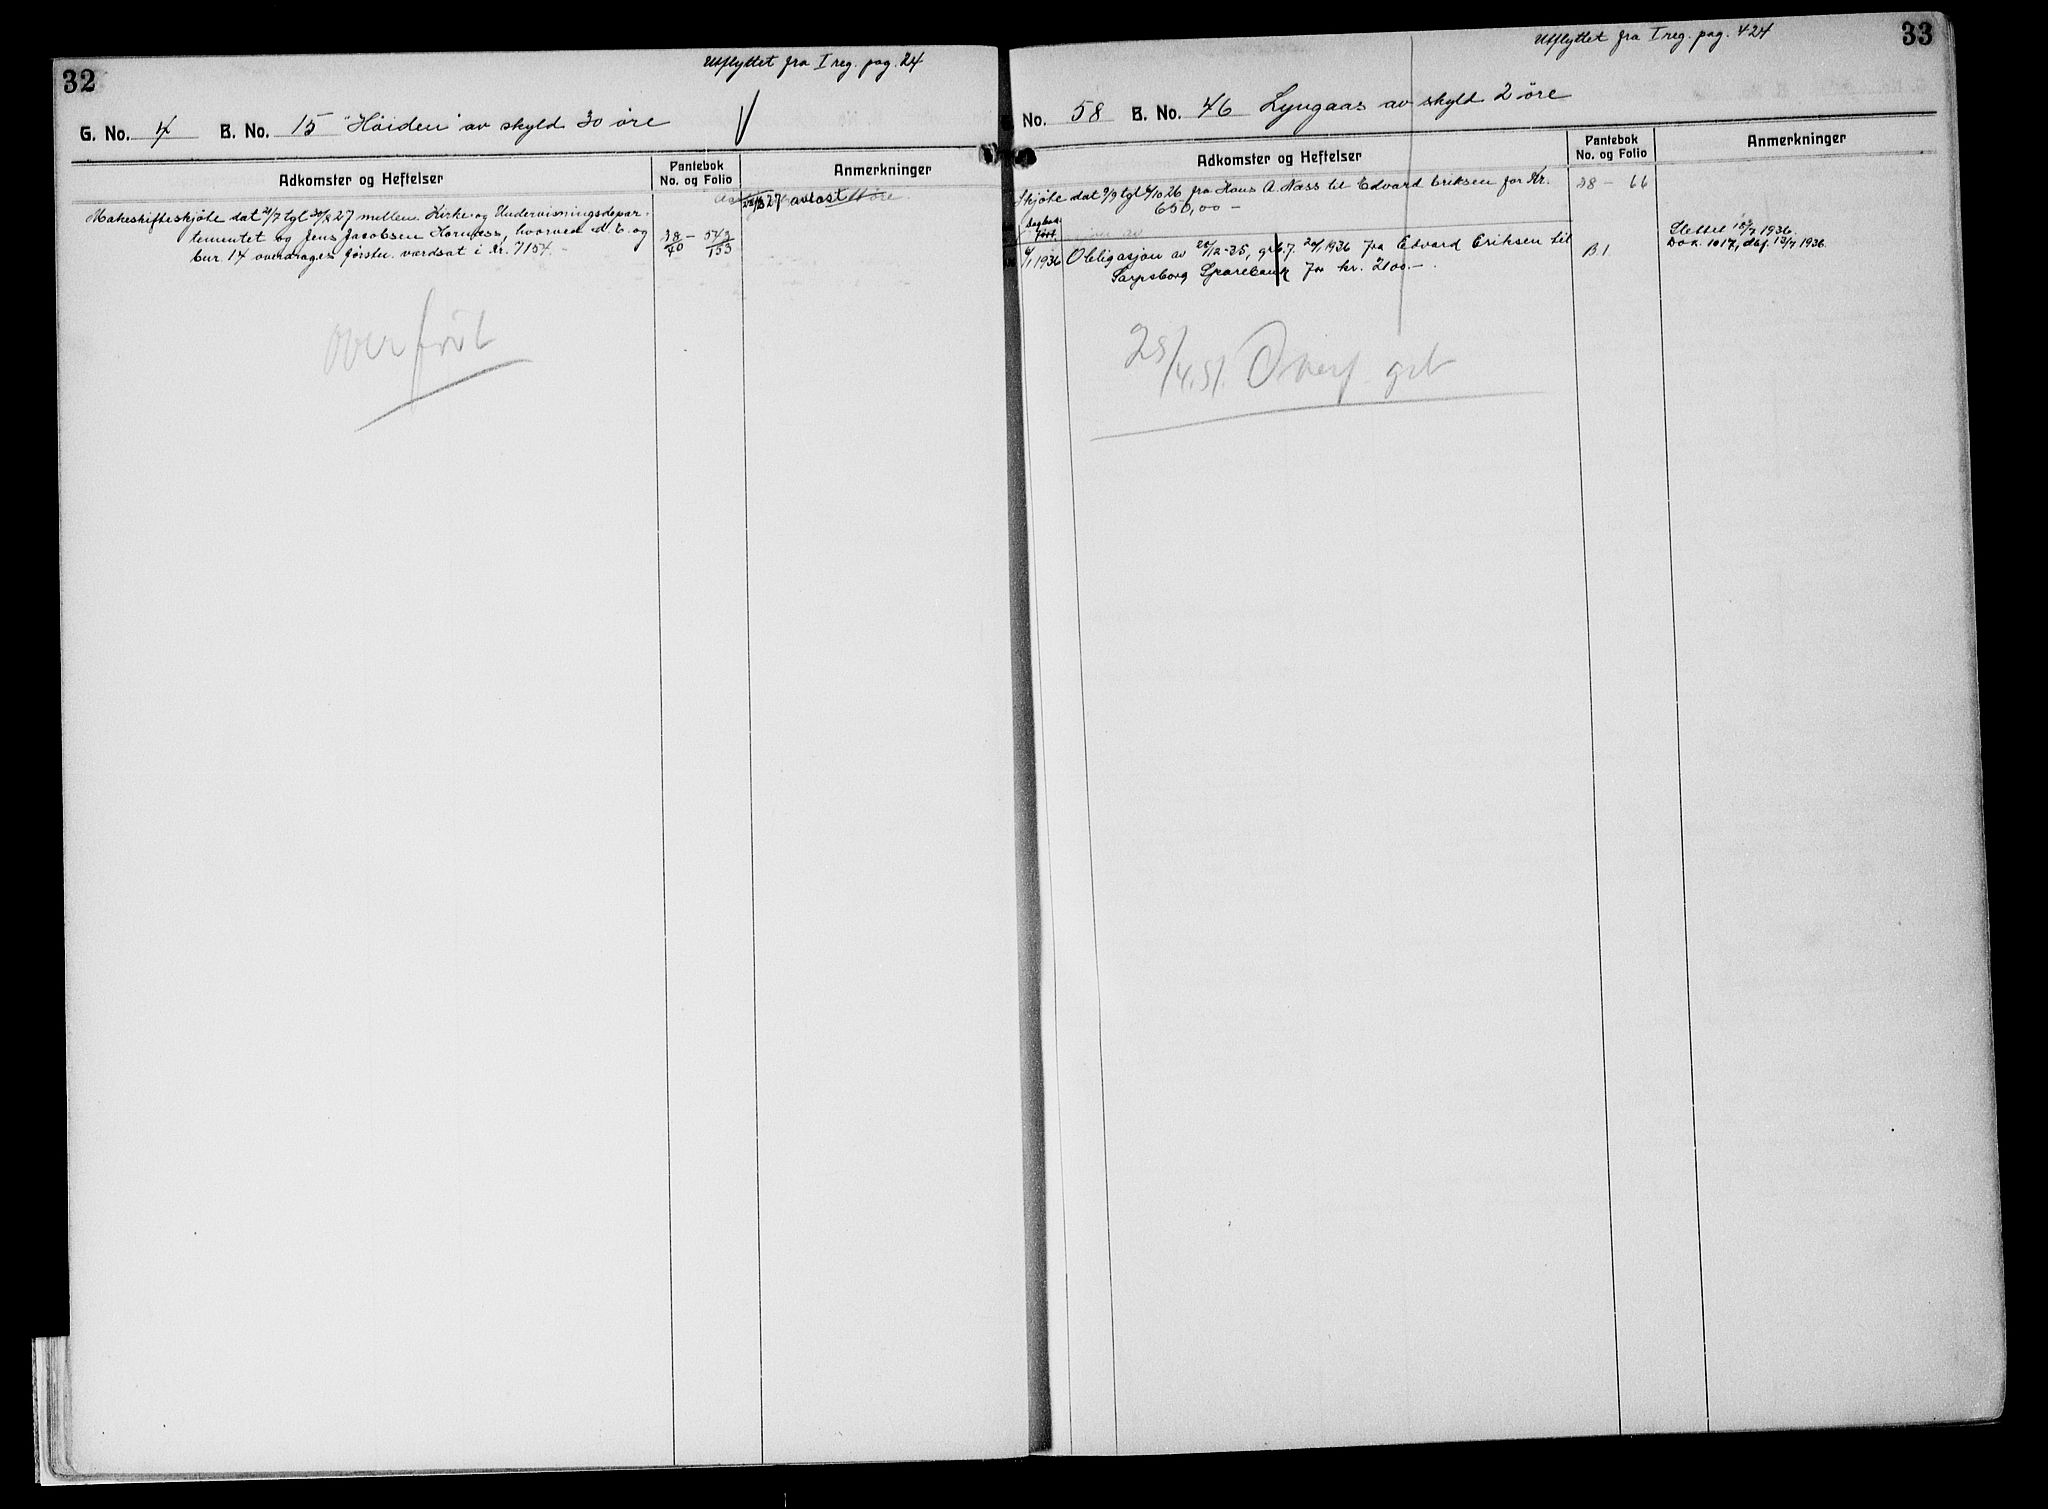 32
Utflyttet fra I reg. pag. 24
G. No. 4 B. No. 15 "Höiden" av skyld 30 öre
Adkomster og Heftelser
Pantebok
No. og Folio
Anmerkninger
27 avlöst
Makeskifteskjöte dat 21/7 tgl 30/8 27 mellem Kirke- og Undervisningsdepar-
tementet og Jens Jacobsen Kornæss, hvorved d. E. og
bnr. 14 overdrages förstn. værdsat i kr. 7154.-
38 - 543
40 153
overført
33
Utflyttet fra I reg. pag. 424
No. 58 B. No. 46 Lyngaas av skyld 2 öre
Adkomster og Heftelser
Pantebok
No. og Folio
Anmerkninger
Skjöte dat 9/9 tgl 6/10 26 fra Hans A. Næss til Edvard Eriksen for Kr.
650,00 -
38 - 66
Dagbok-
fört
1936 Obligasjon av 20/12-35, grb.f. 20/1 1936 fra Edvard Eriksen til
Sarpsborg Sparebank for kr. 2100.-
B.1
Slettet 18/7 1936.
Dok. 1017, dbf. 13/7 1936.
25/4.51. Overf. grb